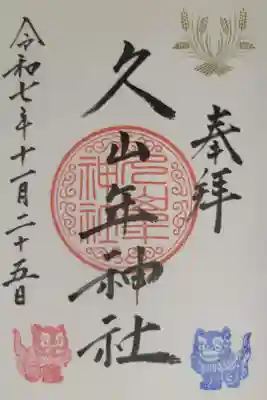 奉拝
久山年神社
令和七年十一月二十五日